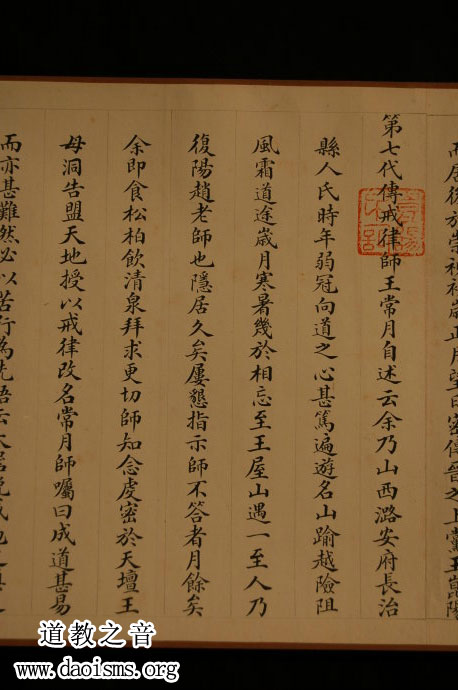 而居後於崇禎歲正月望日密傳晉之上黨王崑陽
第七代傳戒律師王常月自述云余乃山西潞安府長治
縣人氏時年弱冠向道之心甚篤遍遊名山踰越險阻
風霜道途歲月寒暑幾於相忘至王屋山遇一至人乃
復陽趙老師也隱居久矣屢懇指示師不答者月餘矣
余即食松柏飲清泉拜求更切師知念虔密於天壇王
母洞告盟天地授以戒律改名常月師囑曰成道甚易
而亦甚難然必以苦行為先語云
道教之音
www.daoisms.org